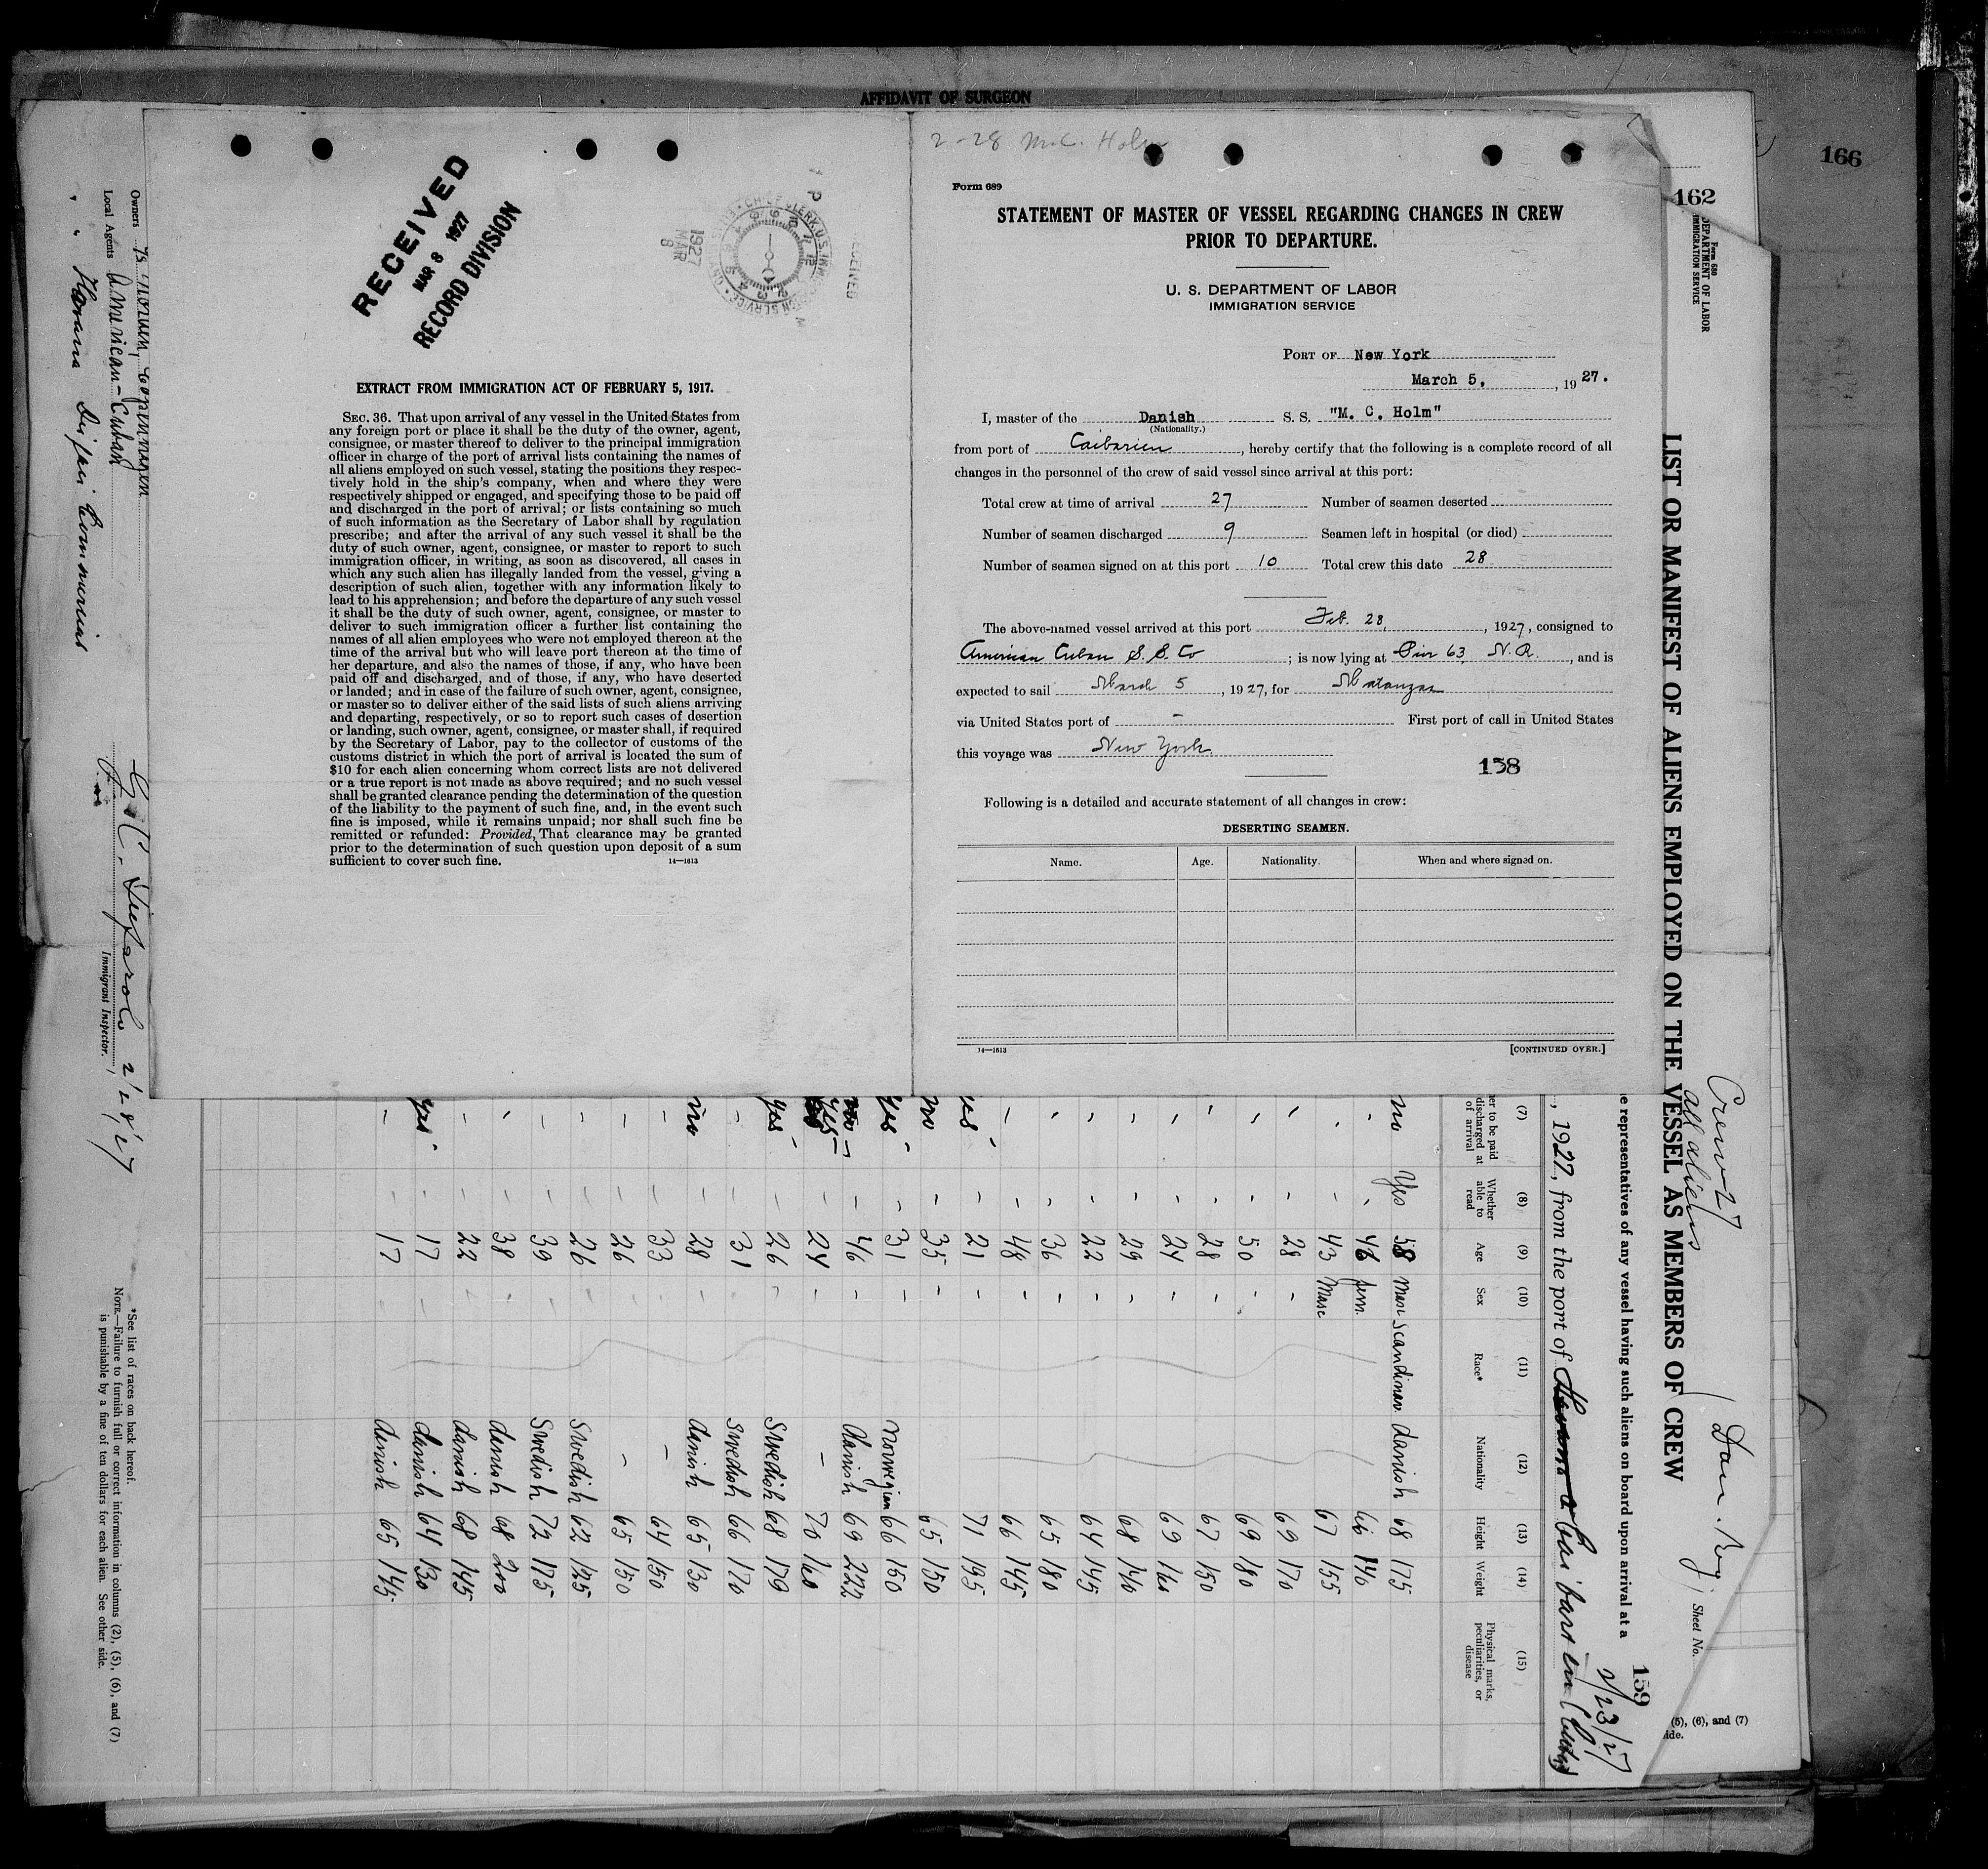 AFFIDAVIT OF SURGEON
166
162
2-28 M.C. Holm
Form 689
STATEMENT OF MASTER OF VESSEL REGARDING CHANGES IN CREW
PRIOR TO DEPARTURE.
U. S. DEPARTMENT OF LABOR
IMMIGRATION SERVICE
PORT OF New York
March 5, , 1927.
I, master of the Danish S. S. "M. C. Holm"
(Nationality.)
from port of Caibarien , hereby certify that the following is a complete record of all
changes in the personnel of the crew of said vessel since arrival at this port:
Total crew at time of arrival 27 Number of seamen deserted
Number of seamen discharged 9 Seamen left in hospital (or died)
Number of seamen signed on at this port 10 Total crew this date 28
The above-named vessel arrived at this port Feb. 28, , 1927, consigned to
American Cuban S. S. Co ; is now lying at Pier 63, N.R. , and is
expected to sail March 5 , 1927, for Matanzas
via United States port of - First port of call in United States
this voyage was New York
158
Following is a detailed and accurate statement of all changes in crew:
DESERTING SEAMEN.
Name. Age. Nationality. When and where signed on.
14—1613 [CONTINUED OVER.]
RECEIVED
MAR 8 1927
RECORD DIVISION
1927
MAR
8
EXTRACT FROM IMMIGRATION ACT OF FEBRUARY 5, 1917.
SEC. 36. That upon arrival of any vessel in the United States from
any foreign port or place it shall be the duty of the owner, agent,
consignee, or master thereof to deliver to the principal immigration
officer in charge of the port of arrival lists containing the names of
all aliens employed on such vessel, stating the positions they respec-
tively hold in the ship's company, when and where they were
respectively shipped or engaged, and specifying those to be paid off
and discharged in the port of arrival; or lists containing so much
of such information as the Secretary of Labor shall by regulation
prescribe; and after the arrival of any such vessel it shall be the
duty of such owner, agent, consignee, or master to report to such
immigration officer, in writing, as soon as discovered, all cases in
which any such alien has illegally landed from the vessel, giving a
description of such alien, together with any information likely to
lead to his apprehension; and before the departure of any such vessel
it shall be the duty of such owner, agent, consignee, or master to
deliver to such immigration officer a further list containing the
names of all alien employees who were not employed thereon at the
time of the arrival but who will leave port thereon at the time of
her departure, and also the names of those, if any, who have been
paid off and discharged, and of those, if any, who have deserted
or landed; and in case of the failure of such owner, agent, consignee,
or master so to deliver either of the said lists of such aliens arriving
and departing, respectively, or so to report such cases of desertion
or landing, such owner, agent, consignee, or master shall, if required
by the Secretary of Labor, pay to the collector of customs of the
customs district in which the port of arrival is located the sum of
$10 for each alien concerning whom correct lists are not delivered
or a true report is not made as above required; and no such vessel
shall be granted clearance pending the determination of the question
of the liability to the payment of such fine, and, in the event such
fine is imposed, while it remains unpaid; nor shall such fine be
remitted or refunded: Provided, That clearance may be granted
prior to the determination of such question upon deposit of a sum
sufficient to cover such fine. 14—1613
Form 680
DEPARTMENT OF LABOR
IMMIGRATION SERVICE
Crew 27
all aliens
Sheet No.
LIST OR MANIFEST OF ALIENS EMPLOYED ON THE VESSEL AS MEMBERS OF CREW
159
representatives of any vessel having such aliens on board upon arrival at a
2/23/27
, 1927, from the port of Caibarien (Cuba)
(5), (6), and (7)
ide.
(7) (8) (9) (10) (11) (12) (13) (14) (15)
er to be paid discharged at of arrival Whether able to read Age Sex Race* Nationality Height Weight Physical marks, peculiarities, or disease
no Yes 58 Masc Scandinav. danish 68 175
- - 46 fem. 66 140
- - 43 Masc 67 155
- - 28 - 69 170
- - 50 - 69 180
- - 28 - 67 150
- - 24 - 69 160
- - 29 - 68 140
- - 22 - 64 145
- - 36 - 65 180
- - 48 - 66 145
es - 21 - 71 195
no - 35 - 65 150
Yes - 31 - Norwegian 66 150
no - 46 - danish 69 222
yes - 24 - - 70 160
yes - 26 - Swedish 68 179
- - 31 - Swedish 66 170
no - 28 - danish 65 130
- - 33 - - 64 150
- - 26 - - 65 150
- - 26 - Swedish 62 125
- - 39 - Swedish 72 175
- - 38 - danish 68 200
- - 22 - danish 68 145
yes - 17 - danish 64 130
- - 17 - danish 65 145
Owners
Local Agents American-Cuban
" " Havana
2/28/27
Immigrant Inspector.
*See list of races on back hereof.
NOTE.—Failure to furnish full or correct information in columns (2), (5), (6), and (7)
is punishable by a fine of ten dollars for each alien. See other side.